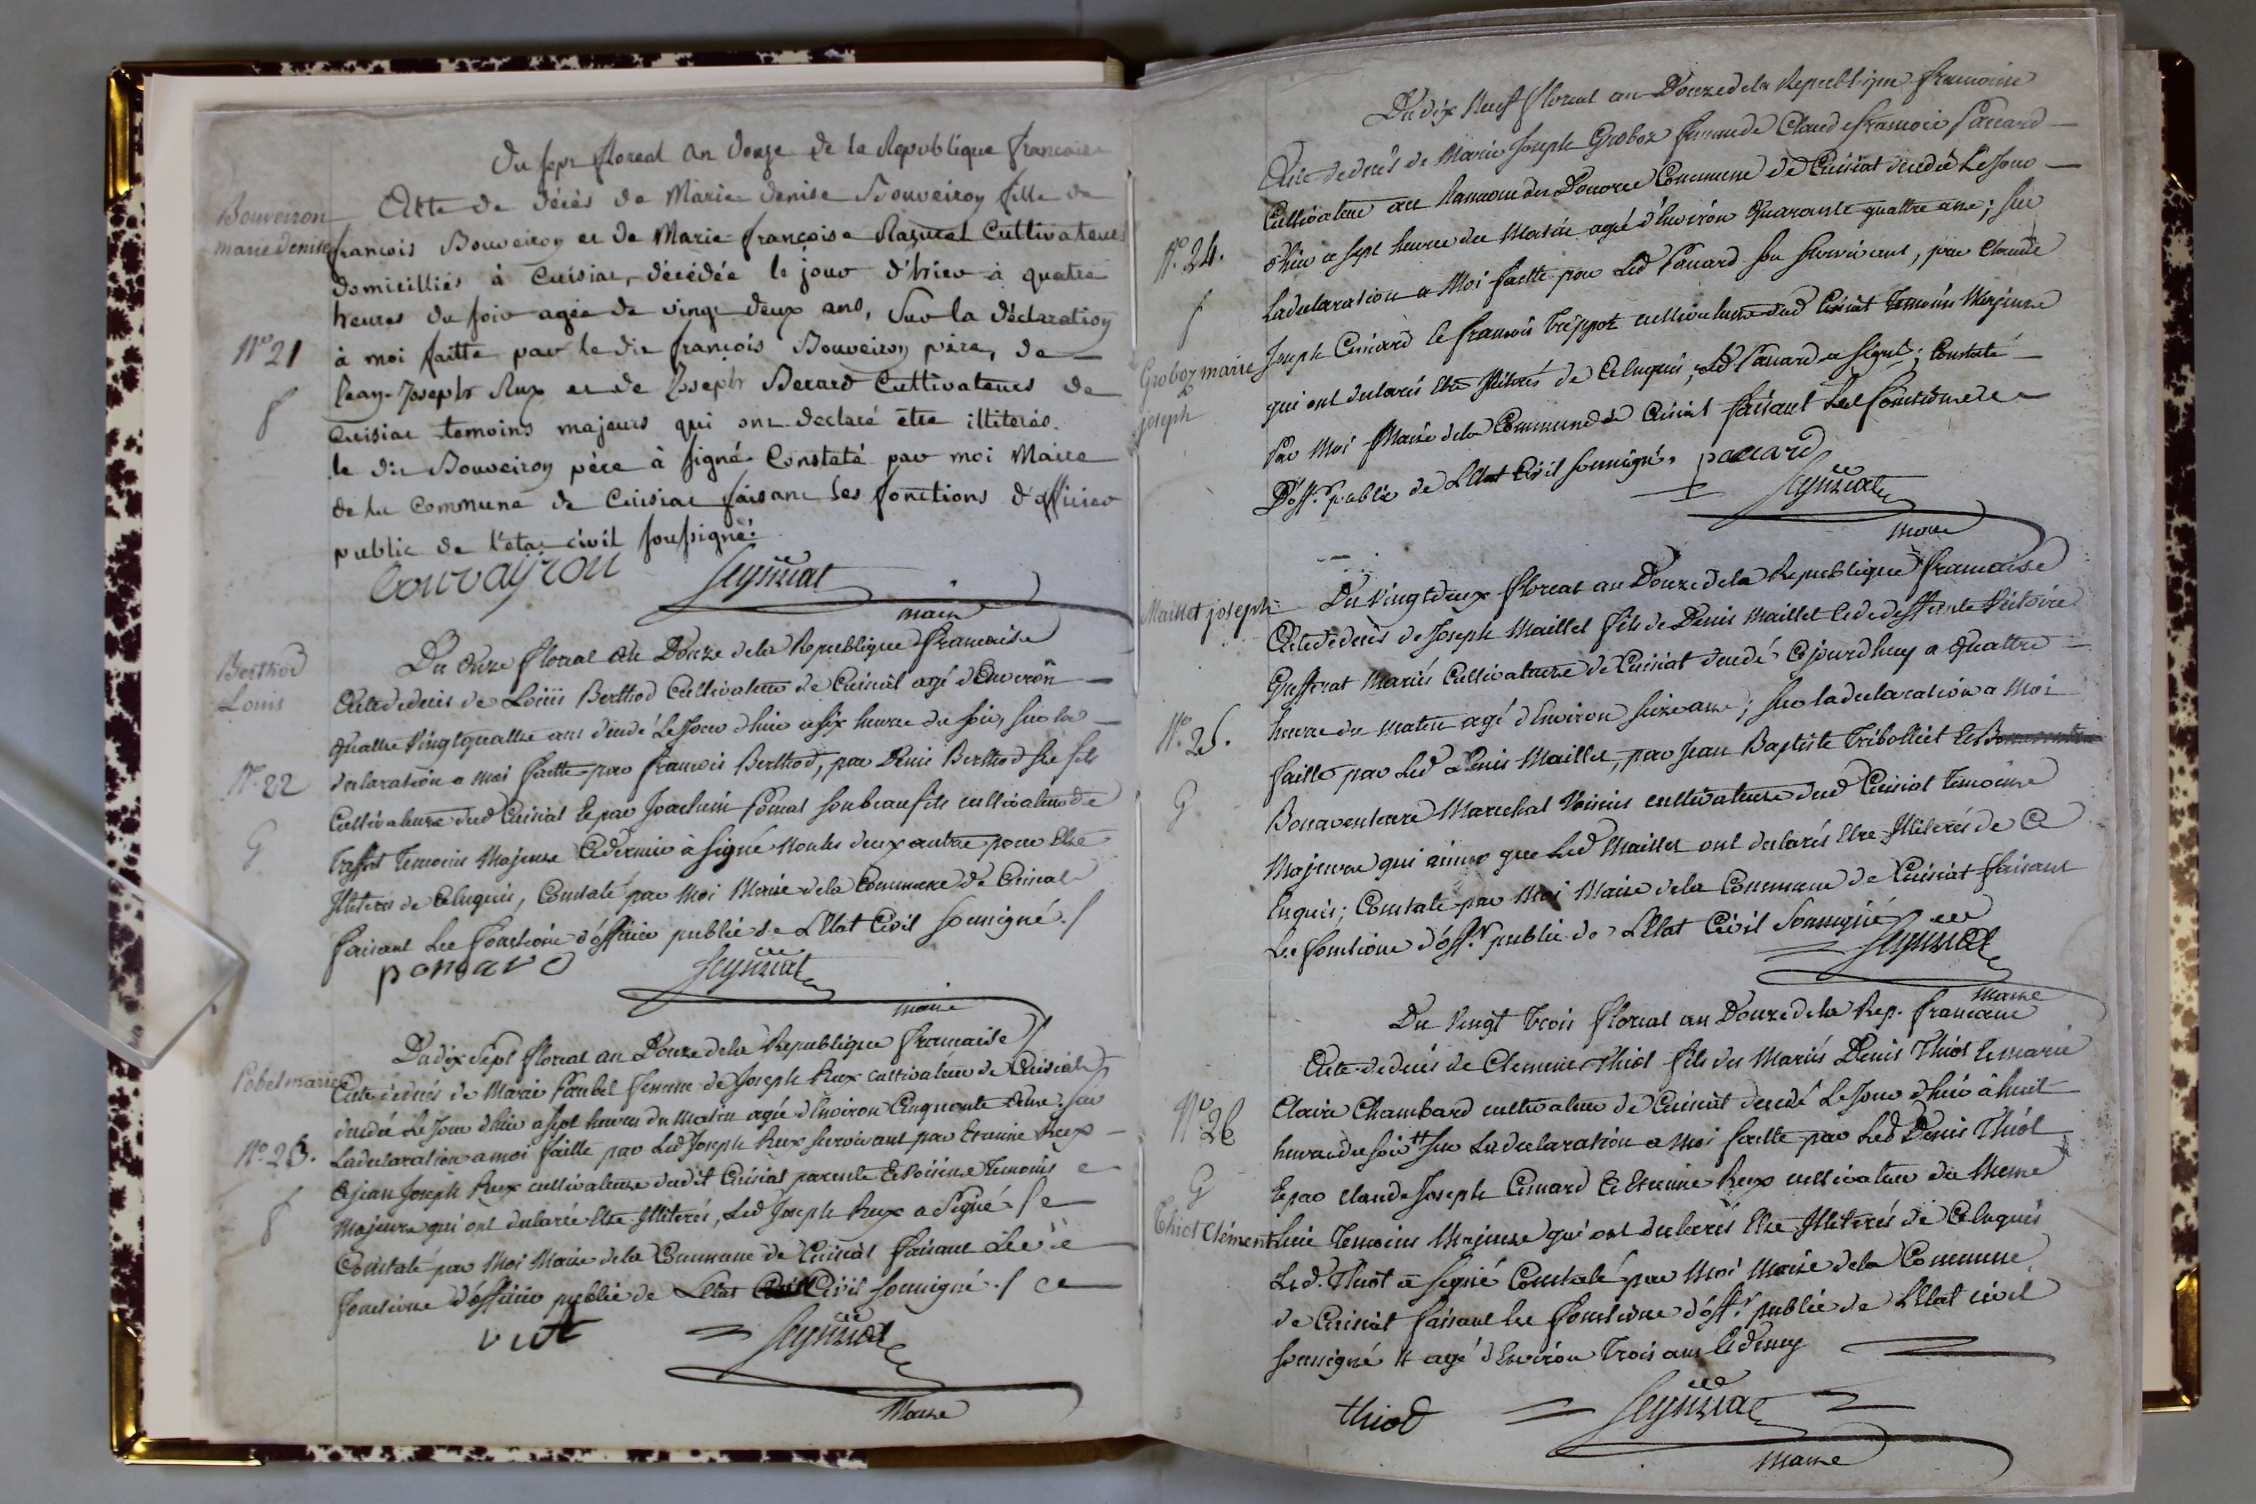 Du sept floreal an douze de la Republique francaise
Bouveiron
marie denise
Acte de décès de Marie denise Bouveiron fille de
françois Bouveiron et de Marie françoise Cultivateurs
domicilliés à Cuisiat, décédée le jour d'hier à quatre
heures du soir agée de vingt deux ans, Sur la déclaration
N° 21
à moi faitte par le dit françois Bouveiron père, de
Jean-Joseph Rux et de Joseph Berard Cultivateurs de
Cuisiat temoins majeurs qui ont declaré être illiterés.
le dit Bouveiron père à signé. Constaté par moi Maire
de la commune de Cuisiat faisant les fonctions d'officier
public de l'etat civil soussigné.
bouvayron
Seyssiat
maire
Berthod
Louis
Du Onze floreal an Douze de la Republique francaise
Acte de deces de Louis Berthod Cultivateur de Cuisiat agé d'Environ
quattre Vingt quattre ans decedé Le Jour d'hier a six heures du soir, sur la
N° 22
declaration a moi faitte par francois Berthod, par Denis Berthod ses fils
G
Cultivateurs dud Cuisiat et par Joachim son beau fils cultivateur de
Treffort Temoins Majeurs Ce dernier à signé Non les deux autres pour Etre
Illiterés de Ce Enquis, Constaté par Moi Maire de la Commune de Cuisiat
faisant Les fonctions d'officier public de L'Etat Civil soussigné
Seyssiat
maire
Du dix Sept floreal an Douze de la Republique francaise
Pobel marie
Acte de deces de Marie femme de Joseph Rux cultivateur de Cuisiat
decedée Le Jour d'hier a sept heures du matin agée d'Environ Cinquante sur
N° 23.
La declaration a moi faitte par Led Joseph Rux survivant par Etienne Rux
et jean Joseph Rux cultivateurs dudit Cuisiat parents Et Voisins Temoins
Majeurs qui ont declarés Etre Illiterés, Led Joseph Rux a Signé
Constaté par Moi Maire de la Commune de Cuisiat faisant Les
fonctions d'officier public de L'Etat Civil soussigné
Seyssiat
Maire
Du dix Neuf floreal an Douze de la Republique francaise
Acte de deces de Marie Joseph Groboz femme de Claude francois Paccard
Cultivateur au hameau de Commune de Cuisiat decedée Le Jour
N° 24.
d'hier a sept heures du Matin agé d'Environ Quarante quattre ans; sur
La declaration a Moi faitte par Led Paccard son survivant, par Claude
Groboz marie
joseph
Joseph Cimard et francois Treppoz cultivateurs dud Cuisiat Temoins Majeurs
qui ont declarés Etre Illiterés de Ce Enquis, Led Paccard a signé; Constaté
Par Moi Maire de la Commune de Cuisiat faisant Les fonctions
D'off.r public de L'Etat Civil soussigné.
paccard
Seyssiat
maire
Maillet joseph
Du Vingt deux floreal an Douze de la Republique francaise
Acte de deces de Joseph Maillet fils de Denis Maillet Et de deffunte Victoire
Mariés Cultivateurs de Cuisiat decedé Cejourd'huy a Quattre
N° 25.
heures du matin agé d'Environ seize ans; sur la declaration a Moi
faitte par Led Denis Maillet, par Jean Baptiste Tribolliet Et
G
Bonaventure Marechal Voisins cultivateurs dud Cuisiat Temoins
Majeurs qui ainsi que Led Maillet ont declarés Etre Illiterés de Ce
Enquis; Constaté par Moi Maire de la Commune de Cuisiat faisant
Les fonctions d'off.r public de L'Etat Civil Soussigné
Seyssiat
maire
Du Vingt Trois floreal an Douze de la Rep. francaise
Acte de deces de Clement Thiot fils des Mariés Denis Thiot Et marie
N° 26
Claire Chambard cultivateurs de Cuisiat decedé Le Jour d'hier à huit
heures du soir # sur La declaration a moi faitte par Led Denis Thiot
G
Et par claude Joseph Cimard Et Etienne Rux cultivateurs du Meme
Thiot Clément
Lieu Temoins Majeurs qui ont declarés Etre Illiterés de Ce Enquis
Led. Thiot a signé Constaté par Moi Maire de la Commune
de Cuisiat faisant Les fonctions d'off.r public de L'Etat civil
soussigné # agé d'Environ Trois ans Et demy
thiod
Seyssiat
maire